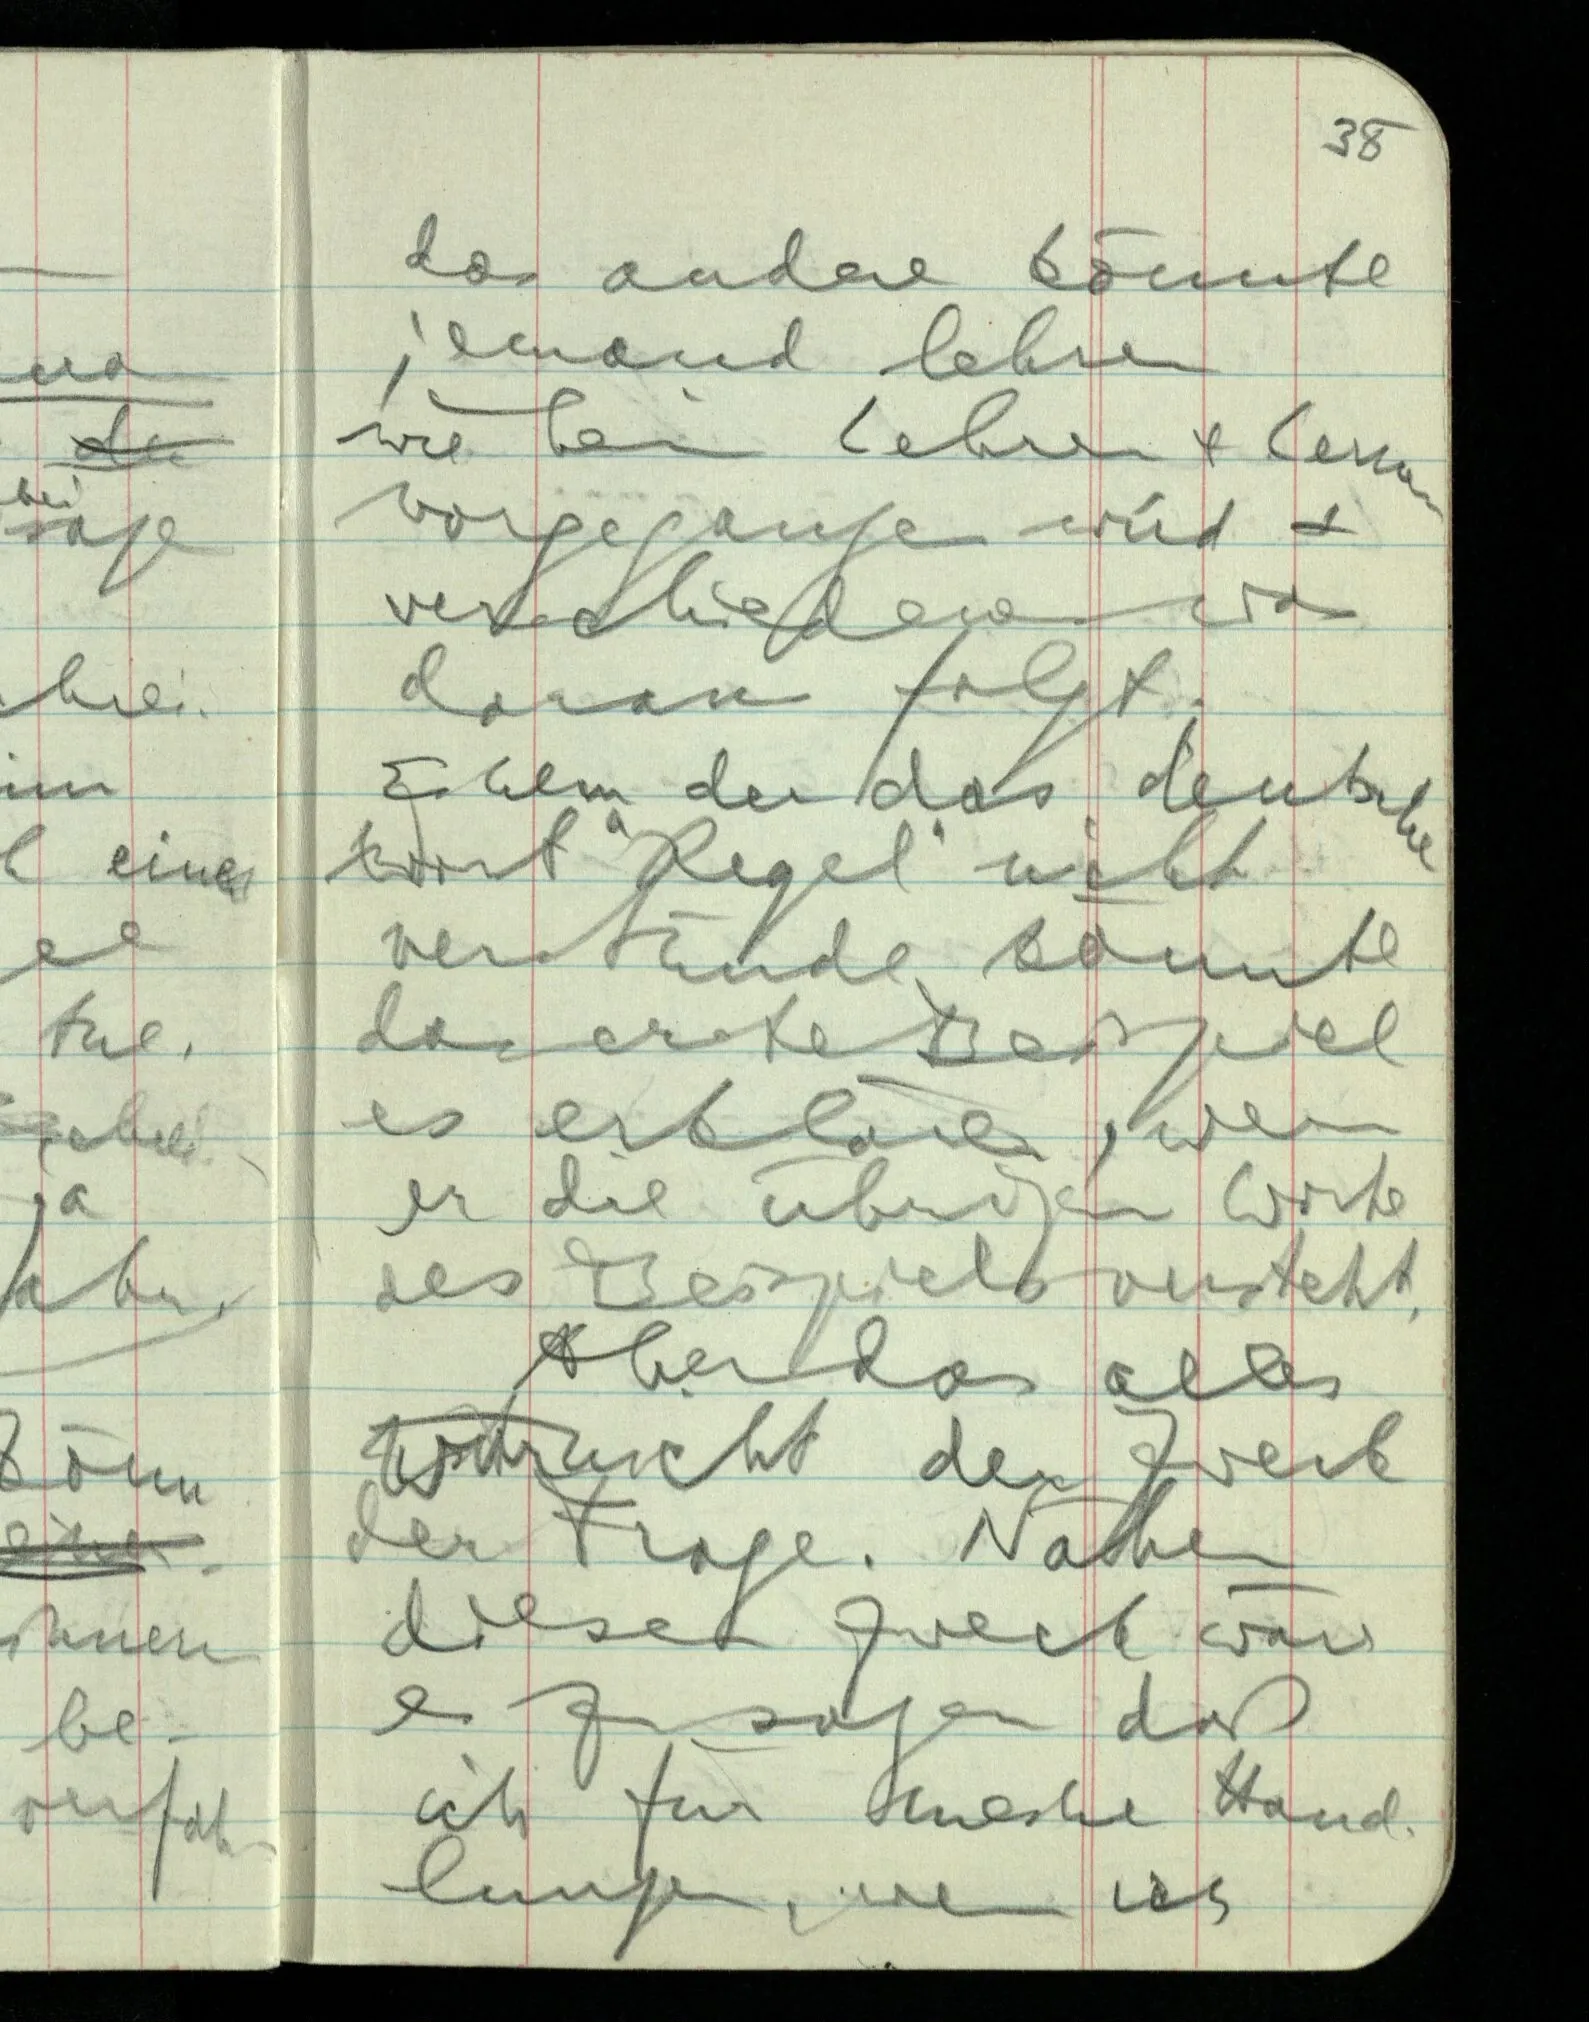 38
das andere könnte
jemand lehren
wie beim Lehren & Lernen
vorgegangen wird &
verschiedenes was
daran folgt.
Einem der das deutsche
Wort "Regel" nicht
verstünde, könnte
das erste Beispiel
es erklären, wenn
er die übrigen Worte
des Beispiels versteht.
Aber das alles
nicht der Zweck
der Frage. Näher
diesem Zweck wäre
es zu sagen daß
ich für meine Hand-
lungen, wenn ich
bei
sage
eines
tue.
ja
aber.
könn
be-
verfah-